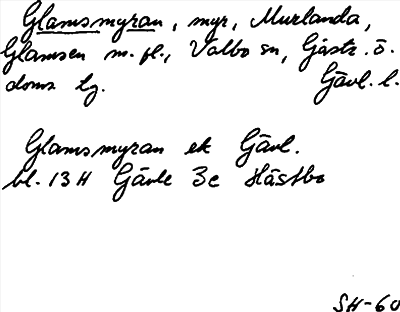 Glamsmyran, myr, Murlanda,
Glamsen m. fl., Valbo sn, Gästr. ö.
doms lg. Gävl. l.
Glamsmyran ek Gävl.
bl. 13 H Gävle 3c Hästbo
SH-60